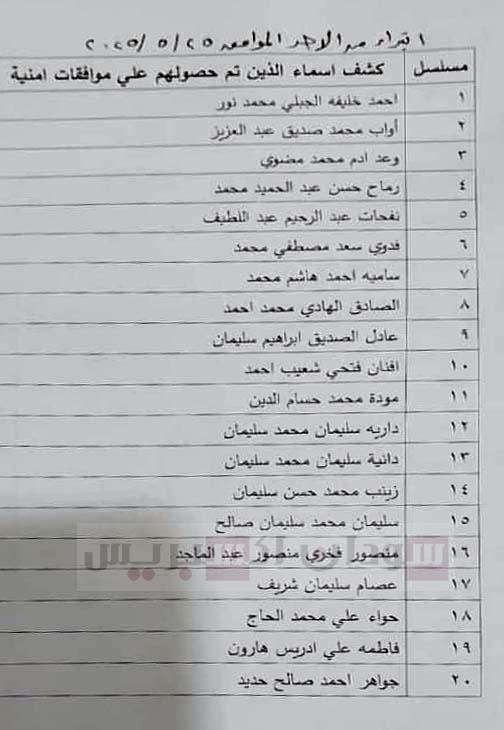 ابتداء من الاحد الموافق ٢٠٢٥/٥/٢٥
مسلسل كشف اسماء الذين تم حصولهم علي موافقات امنية
١ احمد خليفه الجبلي محمد نور
٢ أواب محمد صديق عبد العزيز
٣ وعد ادم محمد مضوي
٤ رماح حسن عبد الحميد محمد
٥ نفحات عبد الرحيم عبد اللطيف
٦ فدوي سعد مصطفي محمد
٧ ساميه احمد هاشم محمد
٨ الصادق الهادي محمد احمد
٩ عادل الصديق ابراهيم سليمان
١٠ افنان فتحي شعيب احمد
١١ مودة محمد حسام الدين
١٢ داريه سليمان محمد سليمان
١٣ دانية سليمان محمد سليمان
١٤ زينب محمد حسن سليمان
١٥ سليمان محمد سليمان صالح
سودان اكسبريس
١٦ منصور فخري منصور عبد الماجد
١٧ عصام سليمان شريف
١٨ حواء علي محمد الحاج
١٩ فاطمه علي ادريس هارون
٢٠ جواهر احمد صالح حديد